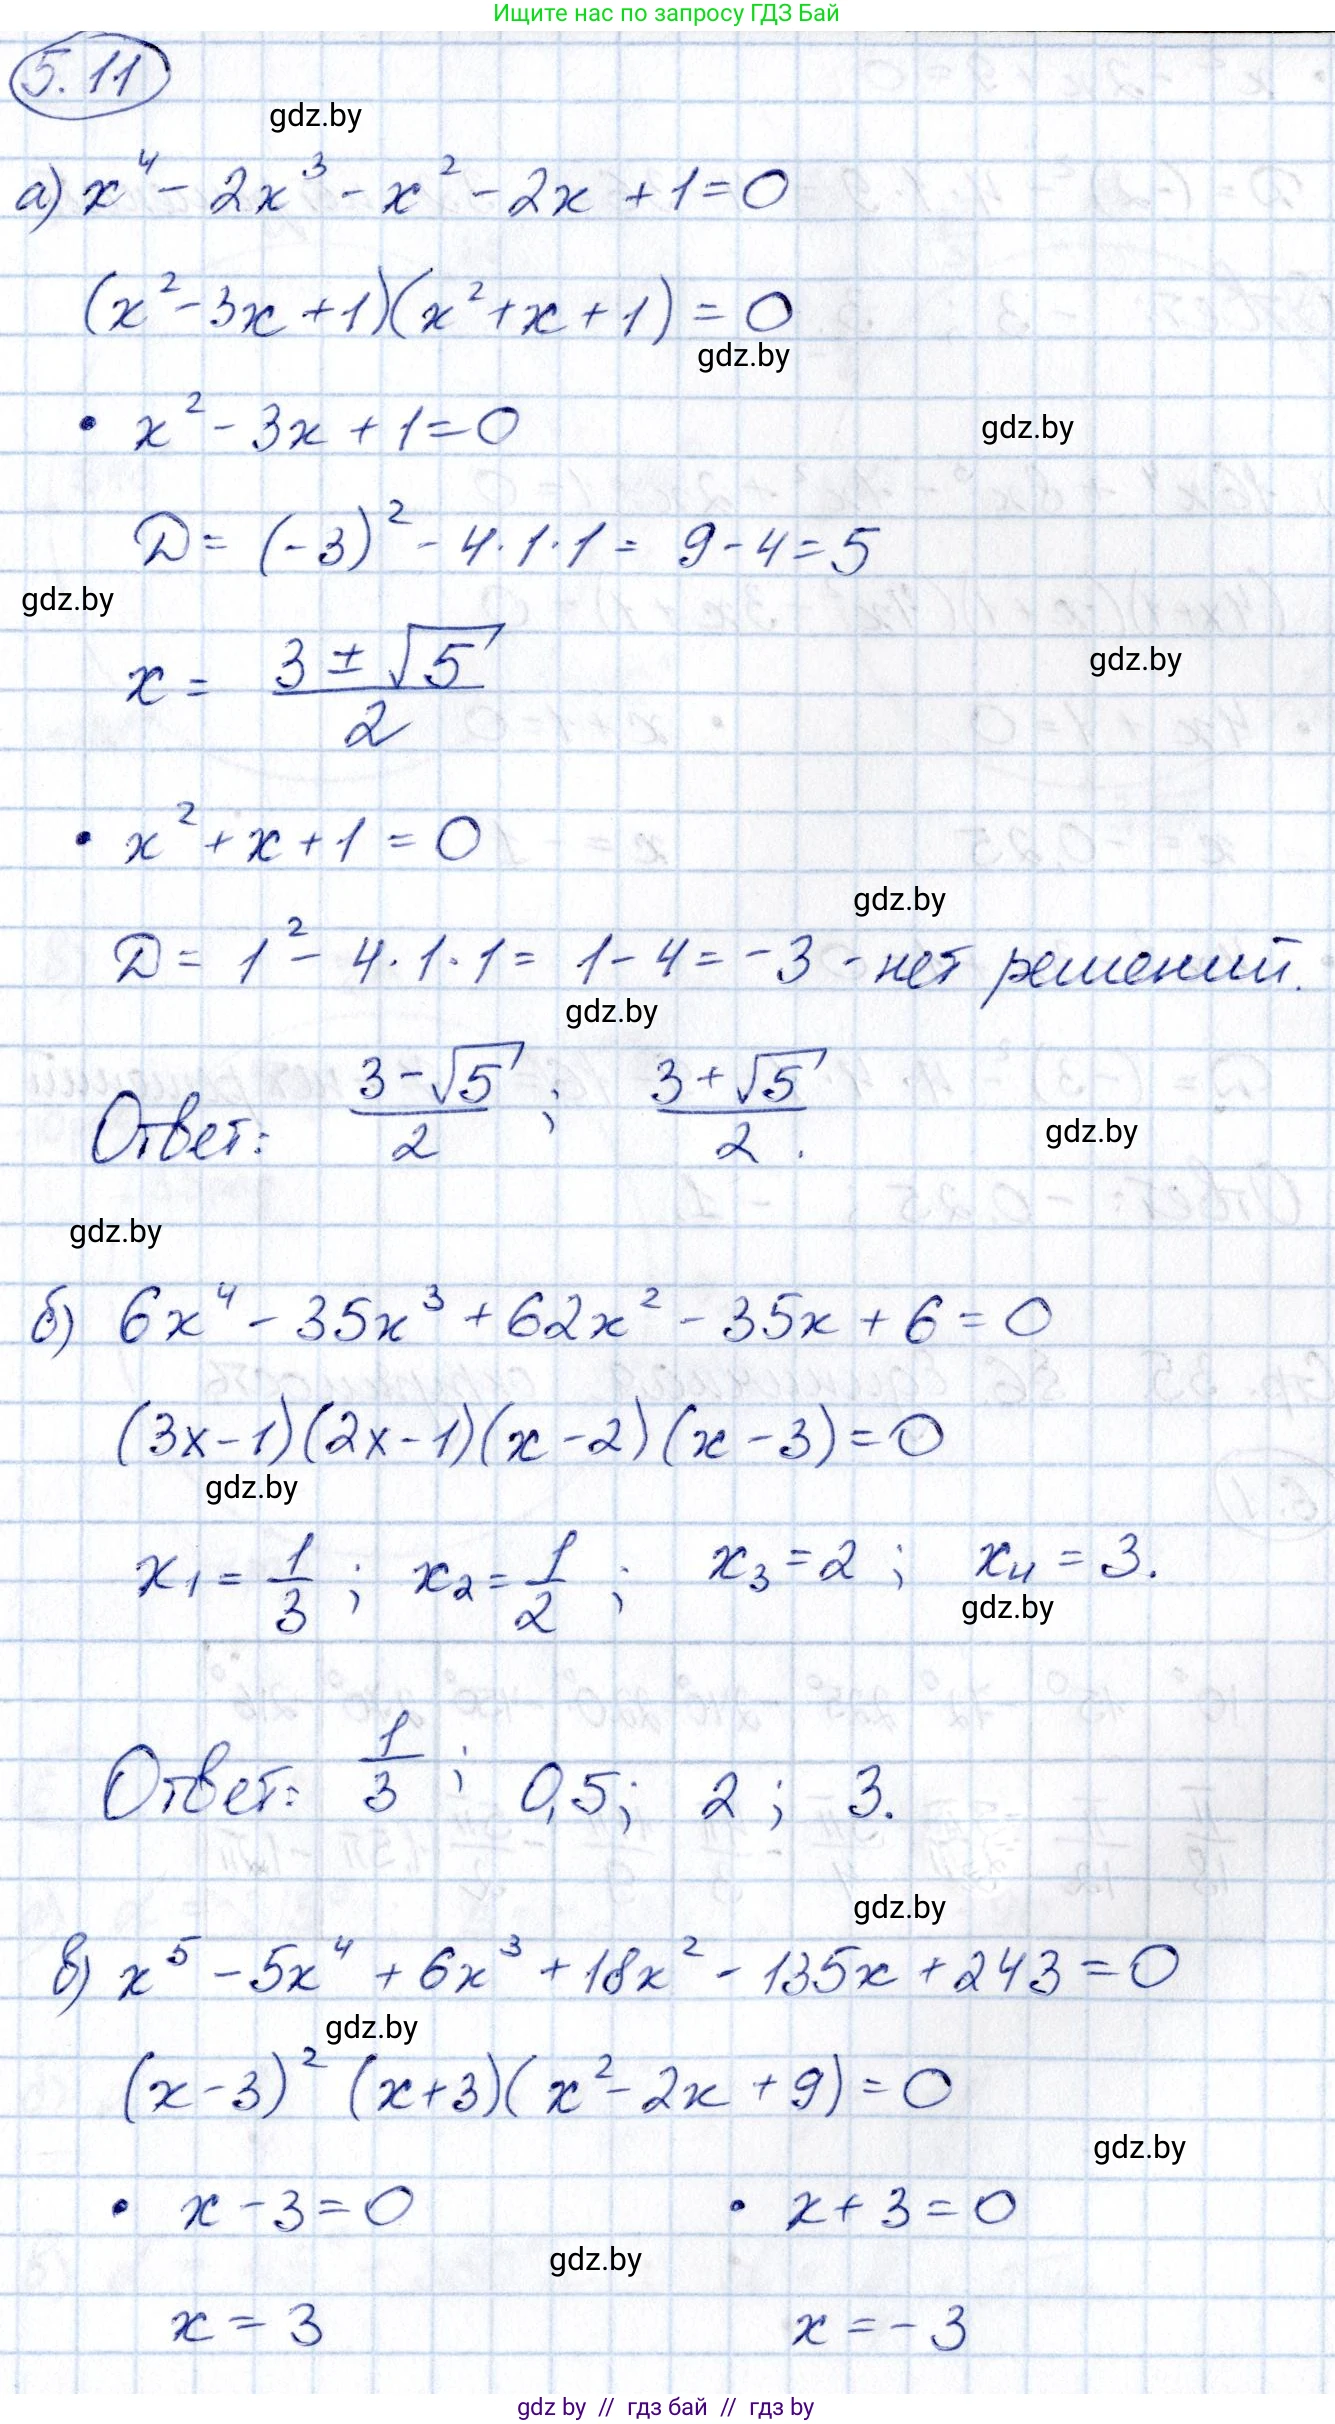 Ищите нас по запросу ГДЗ Бай
5.11
gdz.by
а) x⁴ - 2x³ - x² - 2x + 1 = 0
(x² - 3x + 1)(x² + x + 1) = 0
gdz.by
• x² - 3x + 1 = 0
gdz.by
D = (-3)² - 4·1·1 = 9 - 4 = 5
gdz.by
x = (3 ± √5)/2
gdz.by
• x² + x + 1 = 0
gdz.by
D = 1² - 4·1·1 = 1 - 4 = -3 - нет решений.
gdz.by
Ответ: (3 - √5)/2 ; (3 + √5)/2.
gdz.by
gdz.by
б) 6x⁴ - 35x³ + 62x² - 35x + 6 = 0
(3x - 1)(2x - 1)(x - 2)(x - 3) = 0
gdz.by
x₁ = 1/3 ; x₂ = 1/2 ; x₃ = 2 ; x₄ = 3.
gdz.by
Ответ: 1/3 ; 0,5 ; 2 ; 3.
gdz.by
в) x⁵ - 5x⁴ + 6x³ + 18x² - 135x + 243 = 0
gdz.by
(x - 3)² (x + 3)(x² - 2x + 9) = 0
gdz.by
• x - 3 = 0 • x + 3 = 0
gdz.by
x = 3 x = -3
gdz by // гдз бай // gdz by